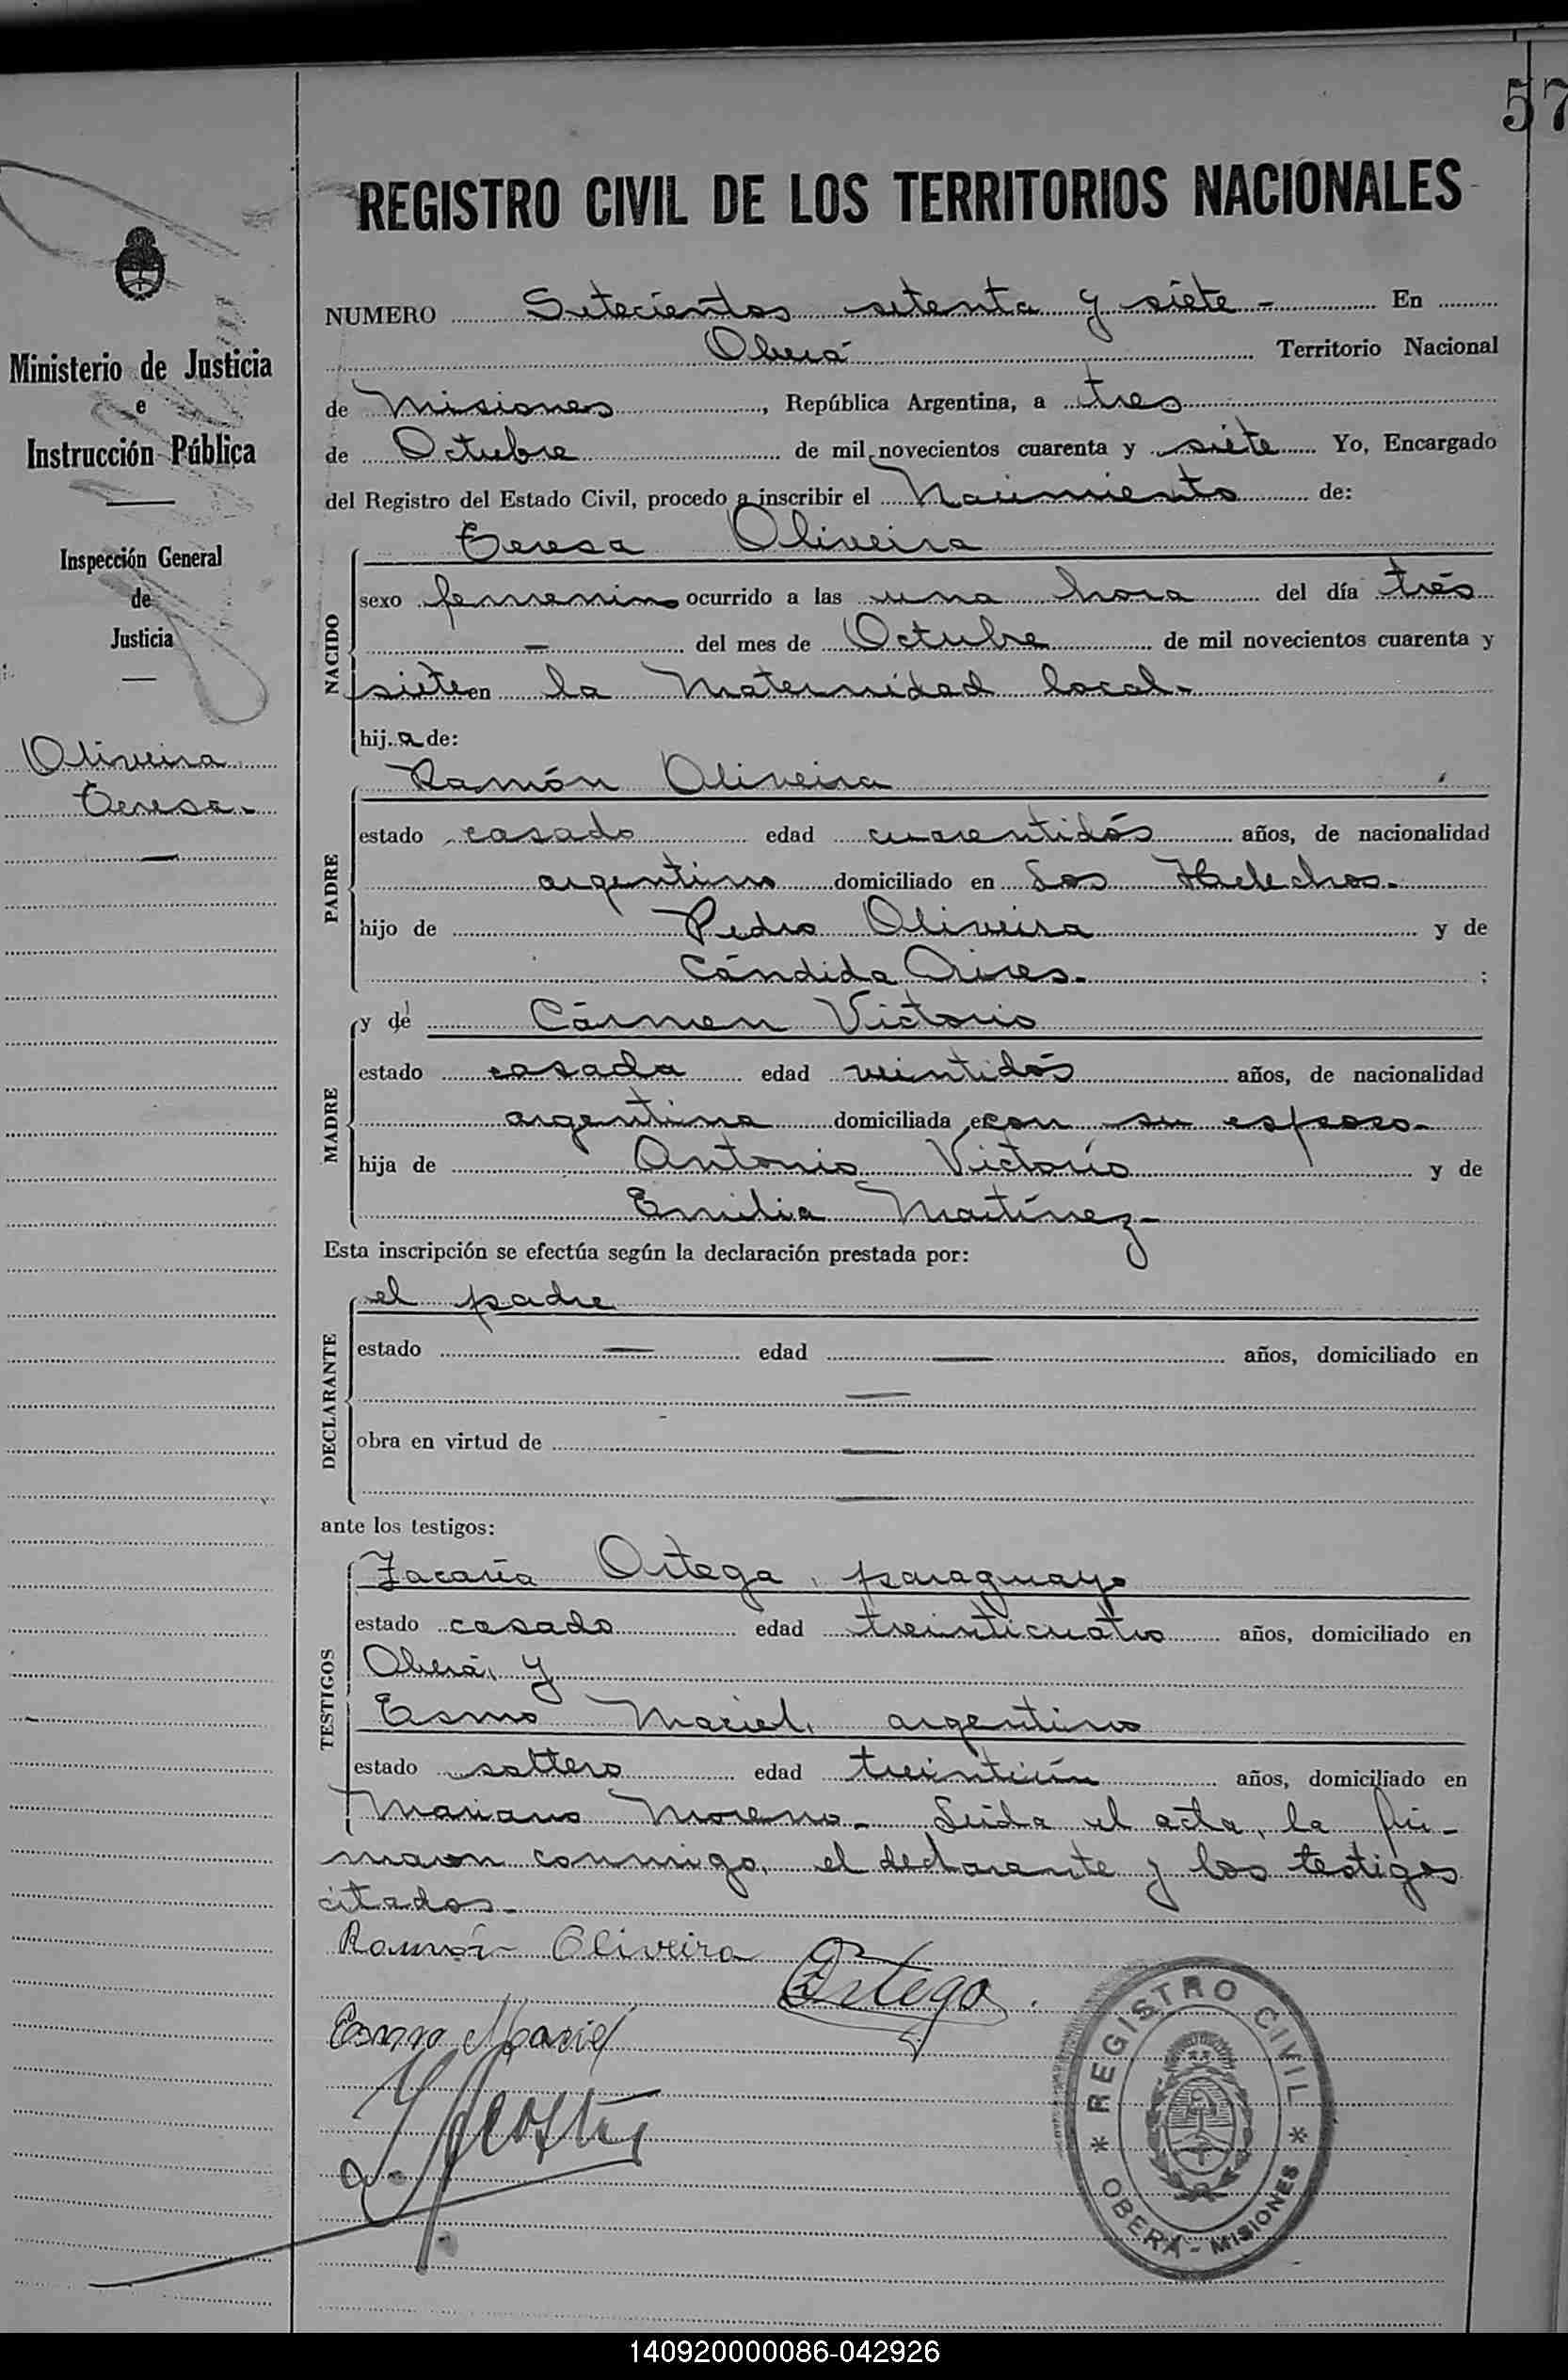 57
REGISTRO CIVIL DE LOS TERRITORIOS NACIONALES
Ministerio de Justicia
e
Instrucción Pública
Inspección General
de
Justicia
Oliveira
Teresa.-
NUMERO Setecientos setenta y siete - En
Oberá Territorio Nacional
de Misiones, República Argentina, a tres
de Octubre de mil novecientos cuarenta y siete Yo, Encargado
del Registro del Estado Civil, procedo a inscribir el Nacimiento de:
NACIDO
Teresa Oliveira
sexo femenino ocurrido a las una hora del día tres
— del mes de Octubre de mil novecientos cuarenta y
siete en la Maternidad local.-
hija de:
PADRE
Ramón Oliveira
estado casado edad cuarentidós años, de nacionalidad
argentino domiciliado en Los Helechos.-
hijo de Pedro Oliveira y de
Cándida Aires.- ;
MADRE
y de Cármen Victorio
estado casada edad veintidós años, de nacionalidad
argentina domiciliada con su esposo.-
hija de Antonio Victorio y de
Emilia Martínez-
Esta inscripción se efectúa según la declaración prestada por:
DECLARANTE
el padre
estado — edad — años, domiciliado en
—
obra en virtud de —
—
ante los testigos:
TESTIGOS
Zacaría Ortega, paraguayo
estado casado edad treinticuatro años, domiciliado en
Oberá, y
Esmo Mariel, argentino
estado soltero edad treintiún años, domiciliado en
Mariano Moreno.- Leida el acta, la fir-
maron conmigo, el declarante y los testigos
citados.-
Ramón Oliveira
Ortega
Esmo Mariel
REGISTRO CIVIL
* OBERÁ - MISIONES *
140920000086-042926